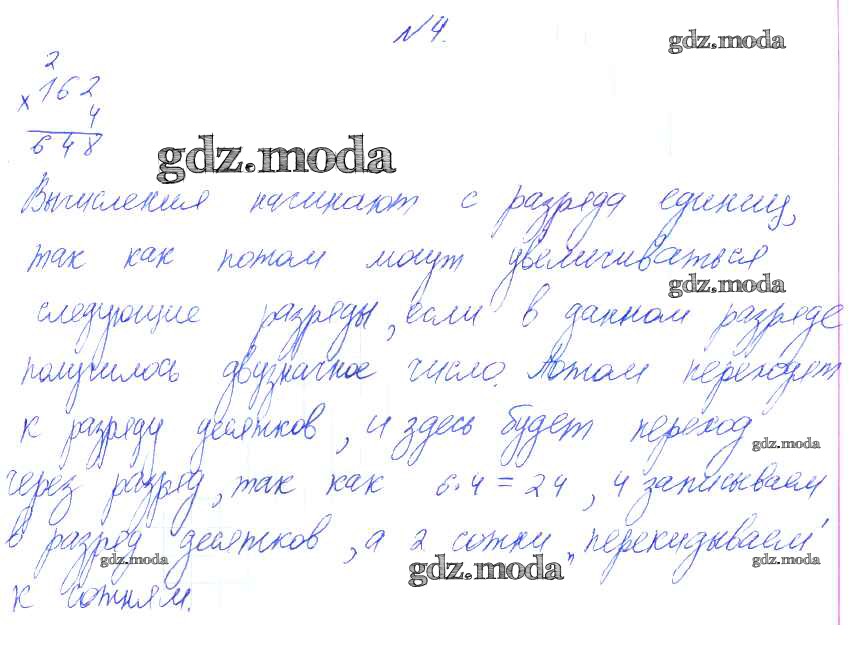 №4.
gdz.moda
2
×162
4
648
gdz.moda
Вычисления начинают с разряда единиц,
так как потом могут увеличиваться
gdz.moda
следующие разряды, если в данном разряде
получилось двузначное число. Потом переходят
к разряду десятков, и здесь будет переход
gdz.moda
через разряд, так как 6·4=24, 4 записываем
в разряд десятков, а 2 сотни "перекидываем"
gdz.moda gdz.moda gdz.moda
к сотням.